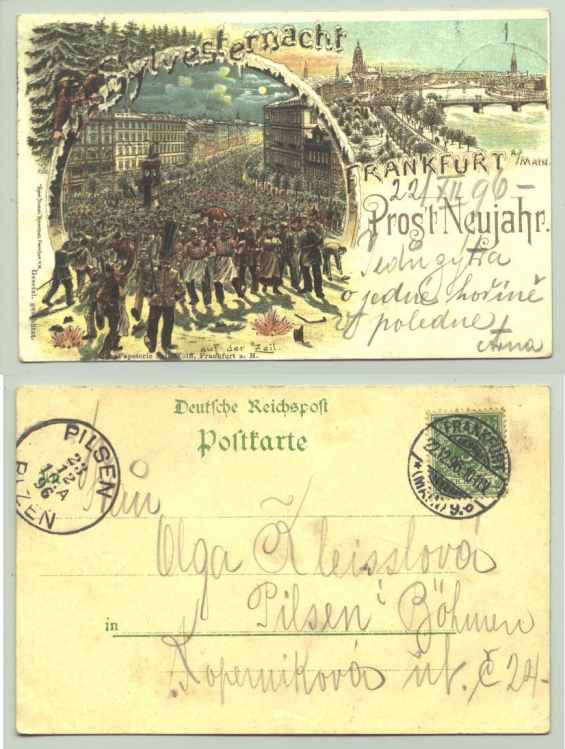 Sylvesternacht
FRANKFURT a/MAIN.
22/XII 96 –
Pros't Neujahr.
Jedu zýtra
o jedné hodině
v poledne!
Anna
auf der Zeil.
Papeterie Frankfurt a. M.
Gesetzl. geschützt.
Deutsche Reichspost
Postkarte
PILSEN
23
12
96
PLZEN
FRANKFURT
22.12.96
(MAIN) 9.
Olga Kleisslová
in Pilsen Böhmen
Koperníková ul. č 24